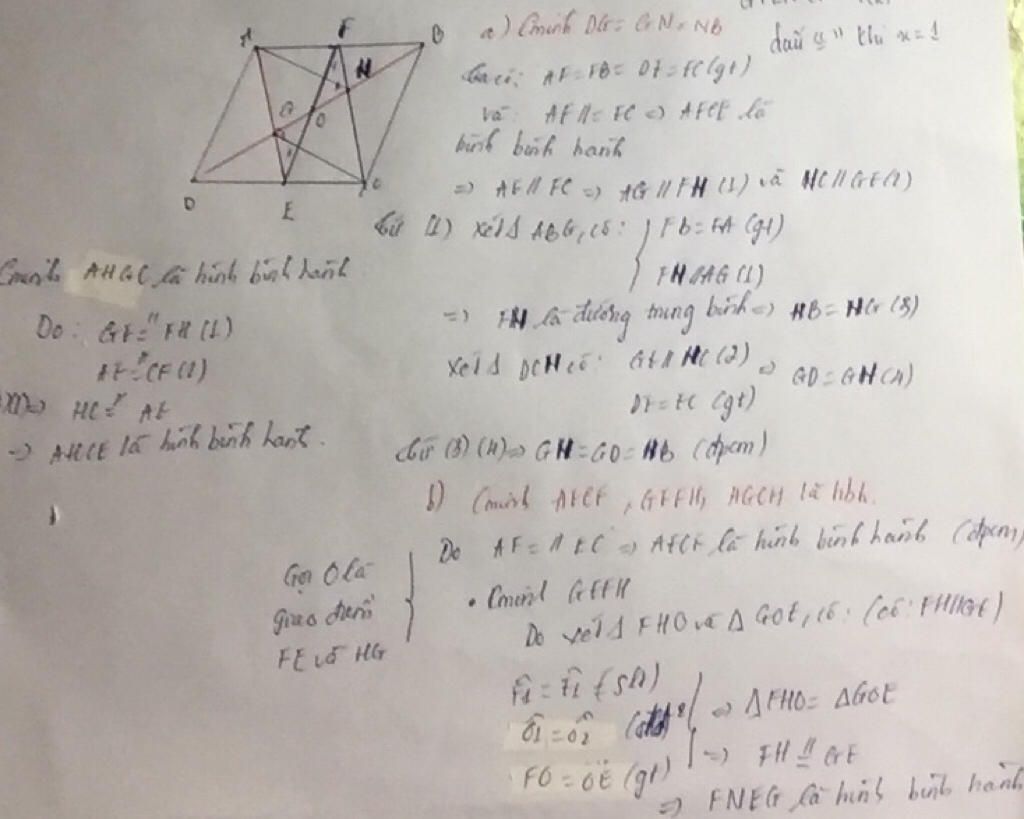 A F B
H
G
O
D E C
a) Cminh DG = GN = NB
dấu "=" khi x = 1
Ta có: AF = FB = DE = EC (gt)
và: AF // = EC => AFCE là
hình bình hành
=> AE // FC => AG // FH (1) và HC // GE (2)
Từ (1) xét Δ ABG, có: FB = FA (gt)
FH // AG (1)
=> FH là đường trung bình => HB = HG (3)
Xét Δ DCH có: GE // HC (2) => GD = GH (4)
DE = EC (gt)
Từ (3) (4) => GH = GD = HB (đpcm)
Cminh AHGC là hình bình hành
Do: GE = // FH (1)
AE = // CF (1)
=> HC = // AE
-> AHCE là hình bình hành.
b) Cminh AECF, GEFH, AGCH là hbh.
Do AF = // EC => AECF là hình bình hành (đpcm)
Gọi O là
giao điểm
FE và HG
• Cminh GEFH
Do xét Δ FHO và Δ GOE, có: (có: FH // GE)
F̂1 = Ê1 (slt)
Ô1 = Ô2 => ΔFHO = ΔGOE
FO = OE (gt) => FH // = GE
=> FNEG là hình bình hành